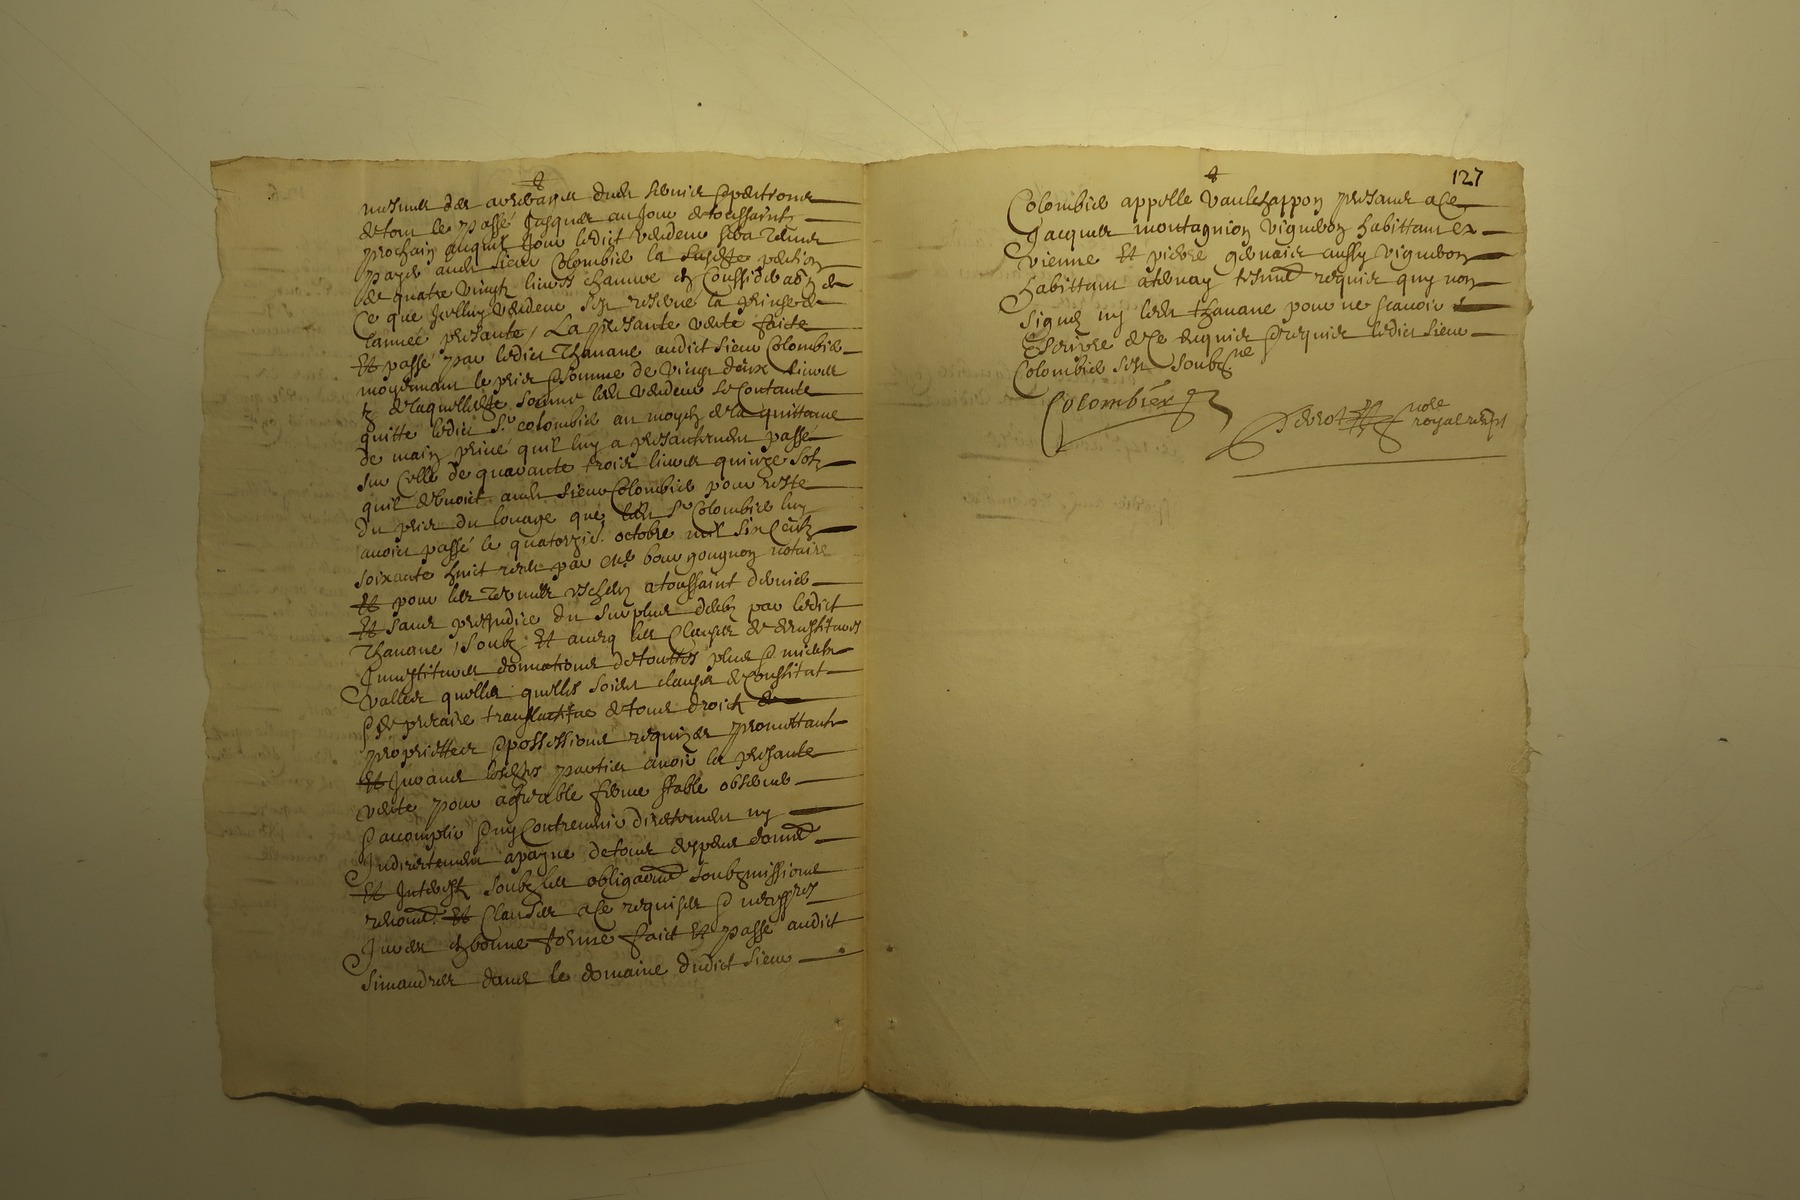 mesmes des arrerages dudt service & pentions
de tout le passé jusques au jour de toussaintz
prochain auquel jour ledict vendeur sera tenu
payer audt sieur Colombier la susdte pention
de quatre vingtz livres chanvre en consideraõn de
ce que jcelluy vendeur s'en reserve la prinse de
l'année presante, La presante vente faicte
Et passé par ledict Thanane audict sieur Colombier
moyennant le prix & somme de vingt deux livres
tz de laquelle somme ledt vendeur se contante
quitte ledict Sr colombier au moyen de la quittance
de main privé quil luy a presantement passé
sur celle de quarante trois livres quinze solz
quil debvoit audt sieur Colombier pour reste
du prix du louage que ledt Sr Colombier luy
avoit passé le quatorzie. octobre mil six centz
soixante huict receu par Me bourgougnon notaire
Et pour les termes escheu a toussaint dernier
Et sans prejudice du surplus deub par ledict
Thanane, soubz Et avecq les clauses de devestitures
Investitures donnations de touttes plus & mieux
values quelles quelles soient clauses de constitut
& de precaire translactifve de tous droictz
proprietter & possessions requizes promettantz
Et Jurant lesdtes parties avoir la presante
vente pour agreable ferme stable observer
& accomplir & ny contrevenir directement ny
Indirectement a payne de tous despens dommes
Et Interestz soubz les obligaõns soubzmissions
renonõns Et clauses a ce requises & necessres
Jurés en bonne forme faict Et passé audict
Simandres dans le domaine dudict sieur
127
Colombier appellé Vaulchappon presants a ce
Jacques montagnion vigneron habittant ex
vienne Et pierre genaie aussy vigneron
habittant a ternay tesmõs requis quy non
signez ny ledt thanane pour ne scavoir
Escrivre de ce enquis & requis ledict sieur
Colombier s'est soubz.né
Colombier
royal